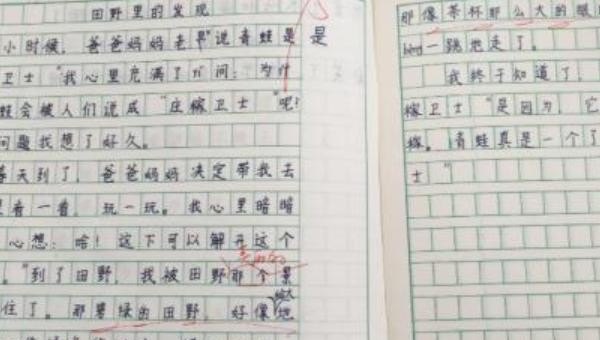 田野里的发现
小时候，爸爸妈妈老早说青蛙是
是
卫士"我心里充满了 问：为什
蛙会被人们说成"庄稼卫士"呢？
问题我想了好久。
天到了，爸爸妈妈决定带我去
里看一看，玩一玩。我心里暗暗
心想：哈！这下可以解开这个
。"到了田野，我被田野那个景
住了。那 绿的田野，好像 地
那像茶杯那么大的眼
一跳地走了。
我终于知道了
稼卫士"是因为，它
稼。青蛙真是一个了
士"